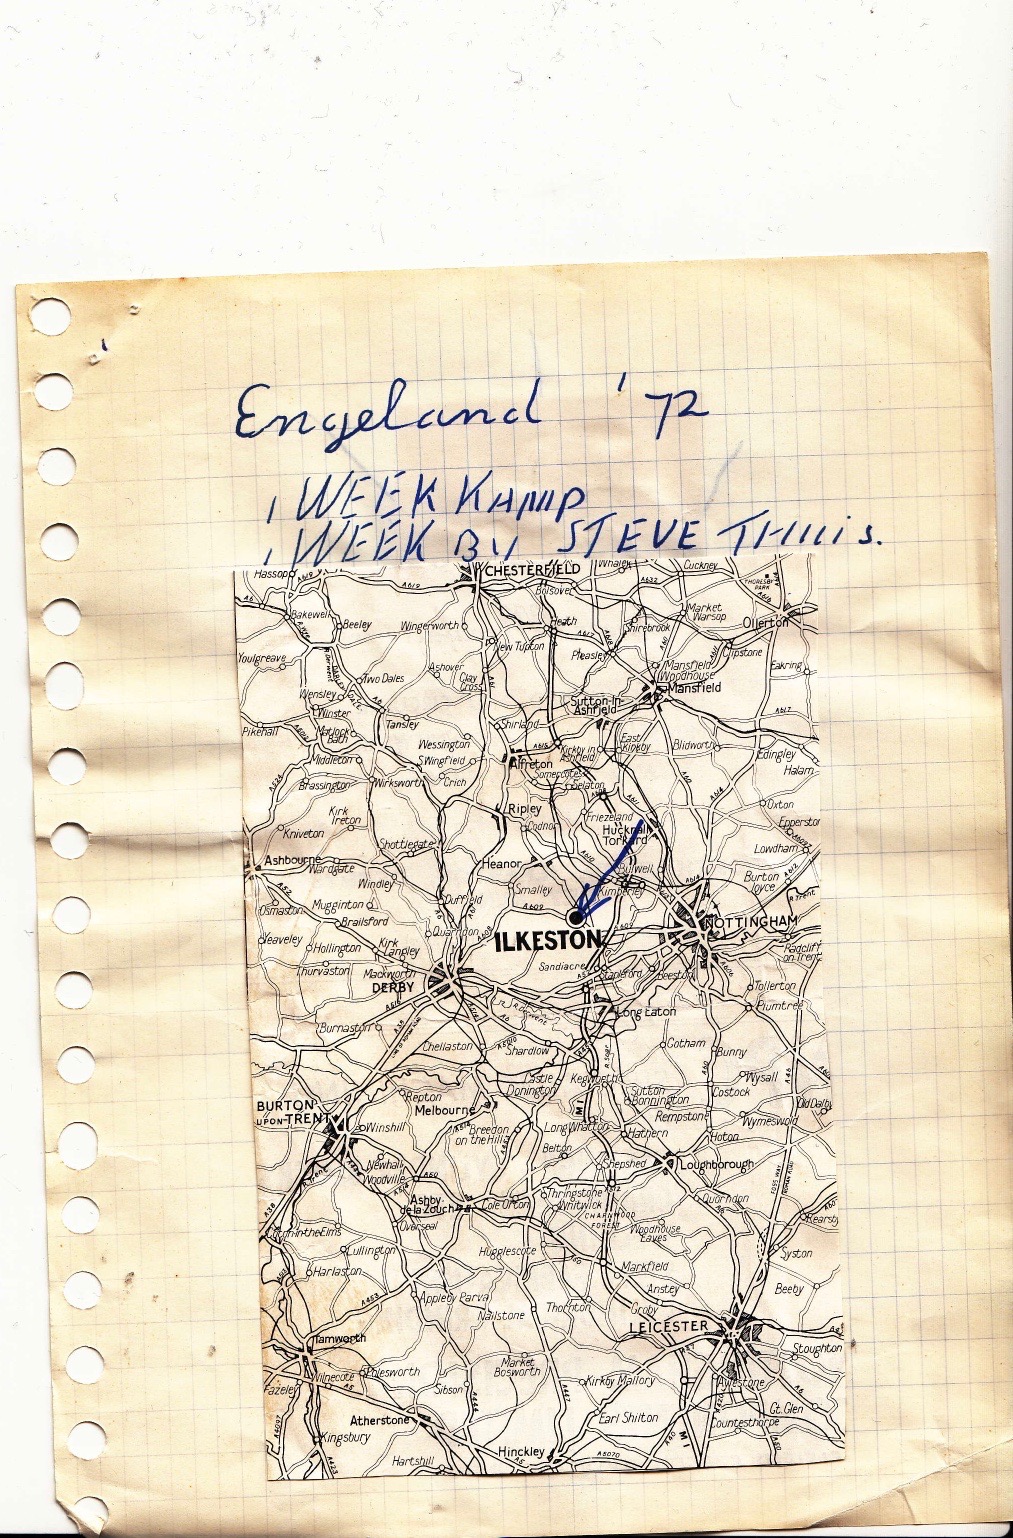 Engeland '72
1 WEEK KAMP
1 WEEK BY STEVE THuis.
Hassop A619 A619 CHESTERFIELD Whalek A632 Cuckney
THORESBY PARK
A6 Bolsover A616
Bakewell Beeley Wingerworth Heath Shirebrook Market Warsop Ollerton
New Tupton A617 Clipstone
Youlgreave Ashover Pleasley Mansfield Woodhouse Eakring
Two Dales Clay Cross A61
Wensley Sutton-In-Ashfield Mansfield
Winster
Pikehall Matlock Bath Tansley Shirland A617
Wessington A615 Kirkby in Ashfield East Kirkby Blidworth Edingley
Middleton S.Wingfield Alfreton Halam
Brassington Wirksworth Crich Somercotes Selston
A614 Oxton
Kirk Ireton Ripley Friezeland Epperstor
Kniveton Codnor Hucknall Torkard
Shottlegate Lowdham
Ashbourne Wardgate Heanor A610 Bulwell A612
Windley Smalley Kimberley A614 Burton Joyce
A52 Duffield R.Trent
Osmaston Mugginton A609
Brailsford NOTTINGHAM
Yeaveley Quarndon ILKESTON A609
Hollington Kirk Langley Radcliff on Trent
Thurvaston Mackworth Sandiacre Stapleford Beeston
DERBY Tollerton
Long Eaton Plumtree
Burnaston
Chellaston Shardlow Gotham Bunny
Castle Donington Kegworth Wysall
Repton Sutton Bonnington Costock A46
BURTON UPON TRENT Melbourne M1 Rempstone Old Dalby
Winshill Breedon on the Hill Long Whatton Wymeswold
Hathern Hoton
Belton
Newhall Shepshed Loughborough
Woodville A50
Ashby de la Zouch Cole Orton Thringstone Quorndon
Whitwick
A38 Overseal CHARNWOOD FOREST Woodhouse Eaves
FOSS WAY ROMAN ROAD
Lullington Hugglescote Syston
Harlaston Markfield
Anstey Beeby
A453 Appleby Parva
Nailstone Thornton Groby
LEICESTER
Tamworth Stoughton
Wilnecote Polesworth Market Bosworth
Fazeley A5 Sibson A444 Kirkby Mallory Aylestone A6
A447 Gt. Glen
Atherstone Earl Shilton Countesthorpe
A4097 Kingsbury M1
Hinckley A5070
A423 Hartshill A5 A50